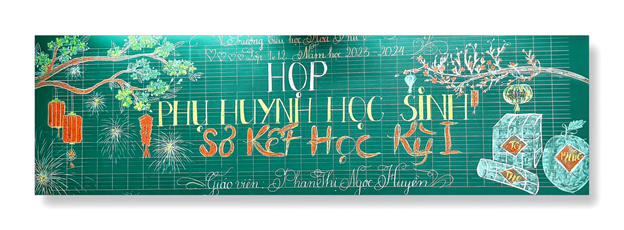 Trường Tiểu học Hoà
Lớp 1e12 Năm học 2023-2024
HỌP
PHỤ HUYNH HỌC SINH
Sơ Kết Học Kỳ I
Giáo viên: Phan Thị Ngọc Huyền